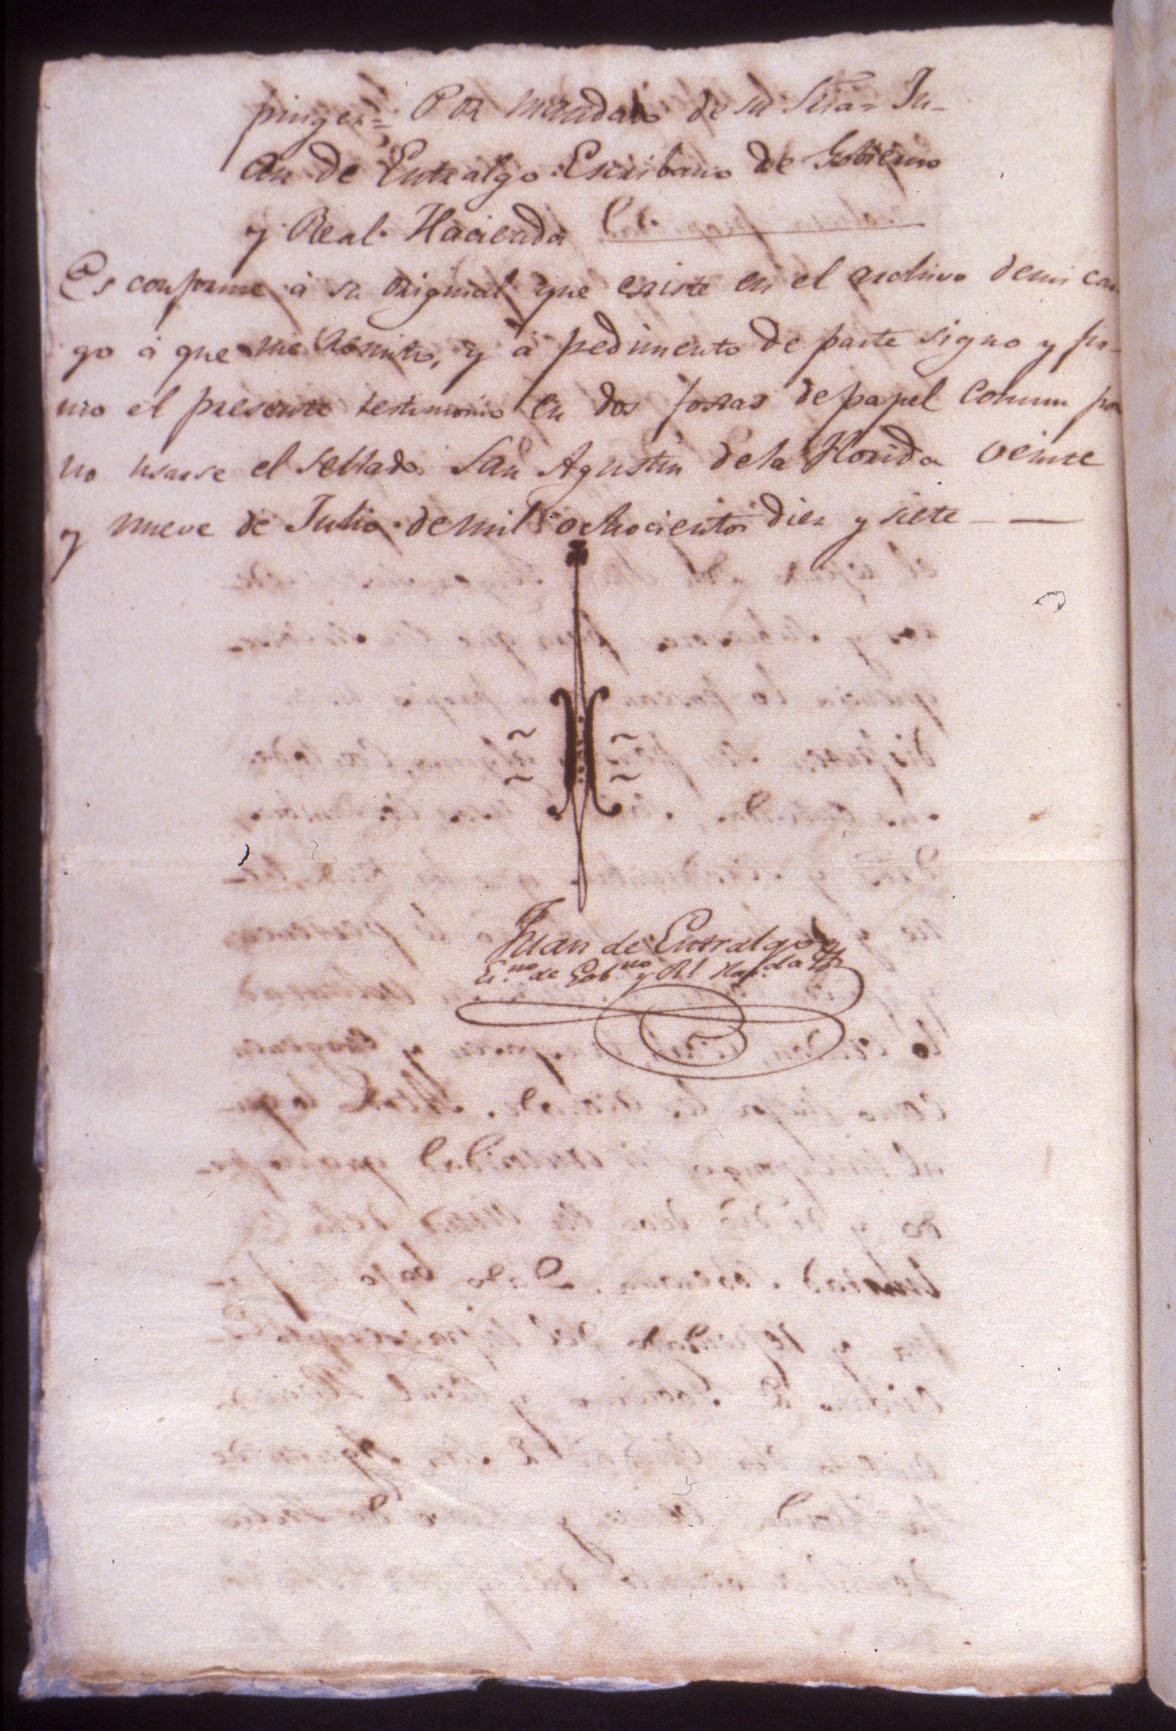 pinger= Por mandado de su Sria= Ju-
an de Entralgo Escribano de Gobierno
y Real Hacienda
Es conforme á su original que existe en el archivo de mi car
go á que me remito, y á pedimento de parte signo y fir-
mo el presente testimonio en dos foxas de papel comun por
no usarse el sellado. San Agustin de la Florida veinte
y nueve de Julio de mil ochocientos diez y siete
Juan de Entralgo
Es.no de Gob.no y Rl Haz.da